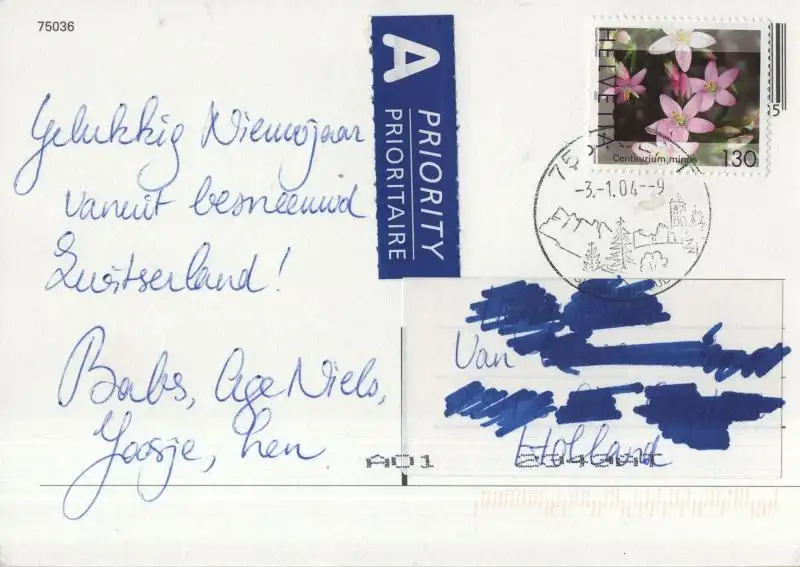 75036
Gelukkig Niewojaar
vanuit besneeuwd
Zwitserland!
Babs, Age Niels,
Joosje, Len.
A
PRIORITY
PRIORITAIRE
HELVETIA
Centaurium minus
130
5
75
-3.-1.04--9
Van
Holland
A01